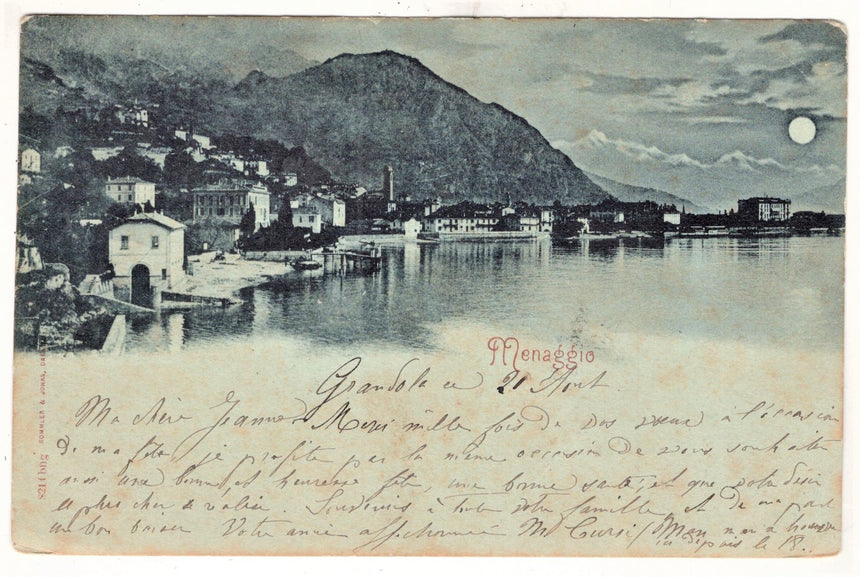 Menaggio
Grandola ce 21 Aout
Ma chère Jeanne Merci mille fois de vos vœux à l'occasion
de ma fête, je profite par la même occasion de vous souhaiter
aussi une bonne, et heureuse fête, une bonne santé, et que votre désir
le plus cher se realise. Souvenirs à toute votre famille et de ma part
un bon baiser Votre amie affectionnée M. Cursi / Man
ici depuis le 18..
ROMMLER & JONAS, DRESDEN